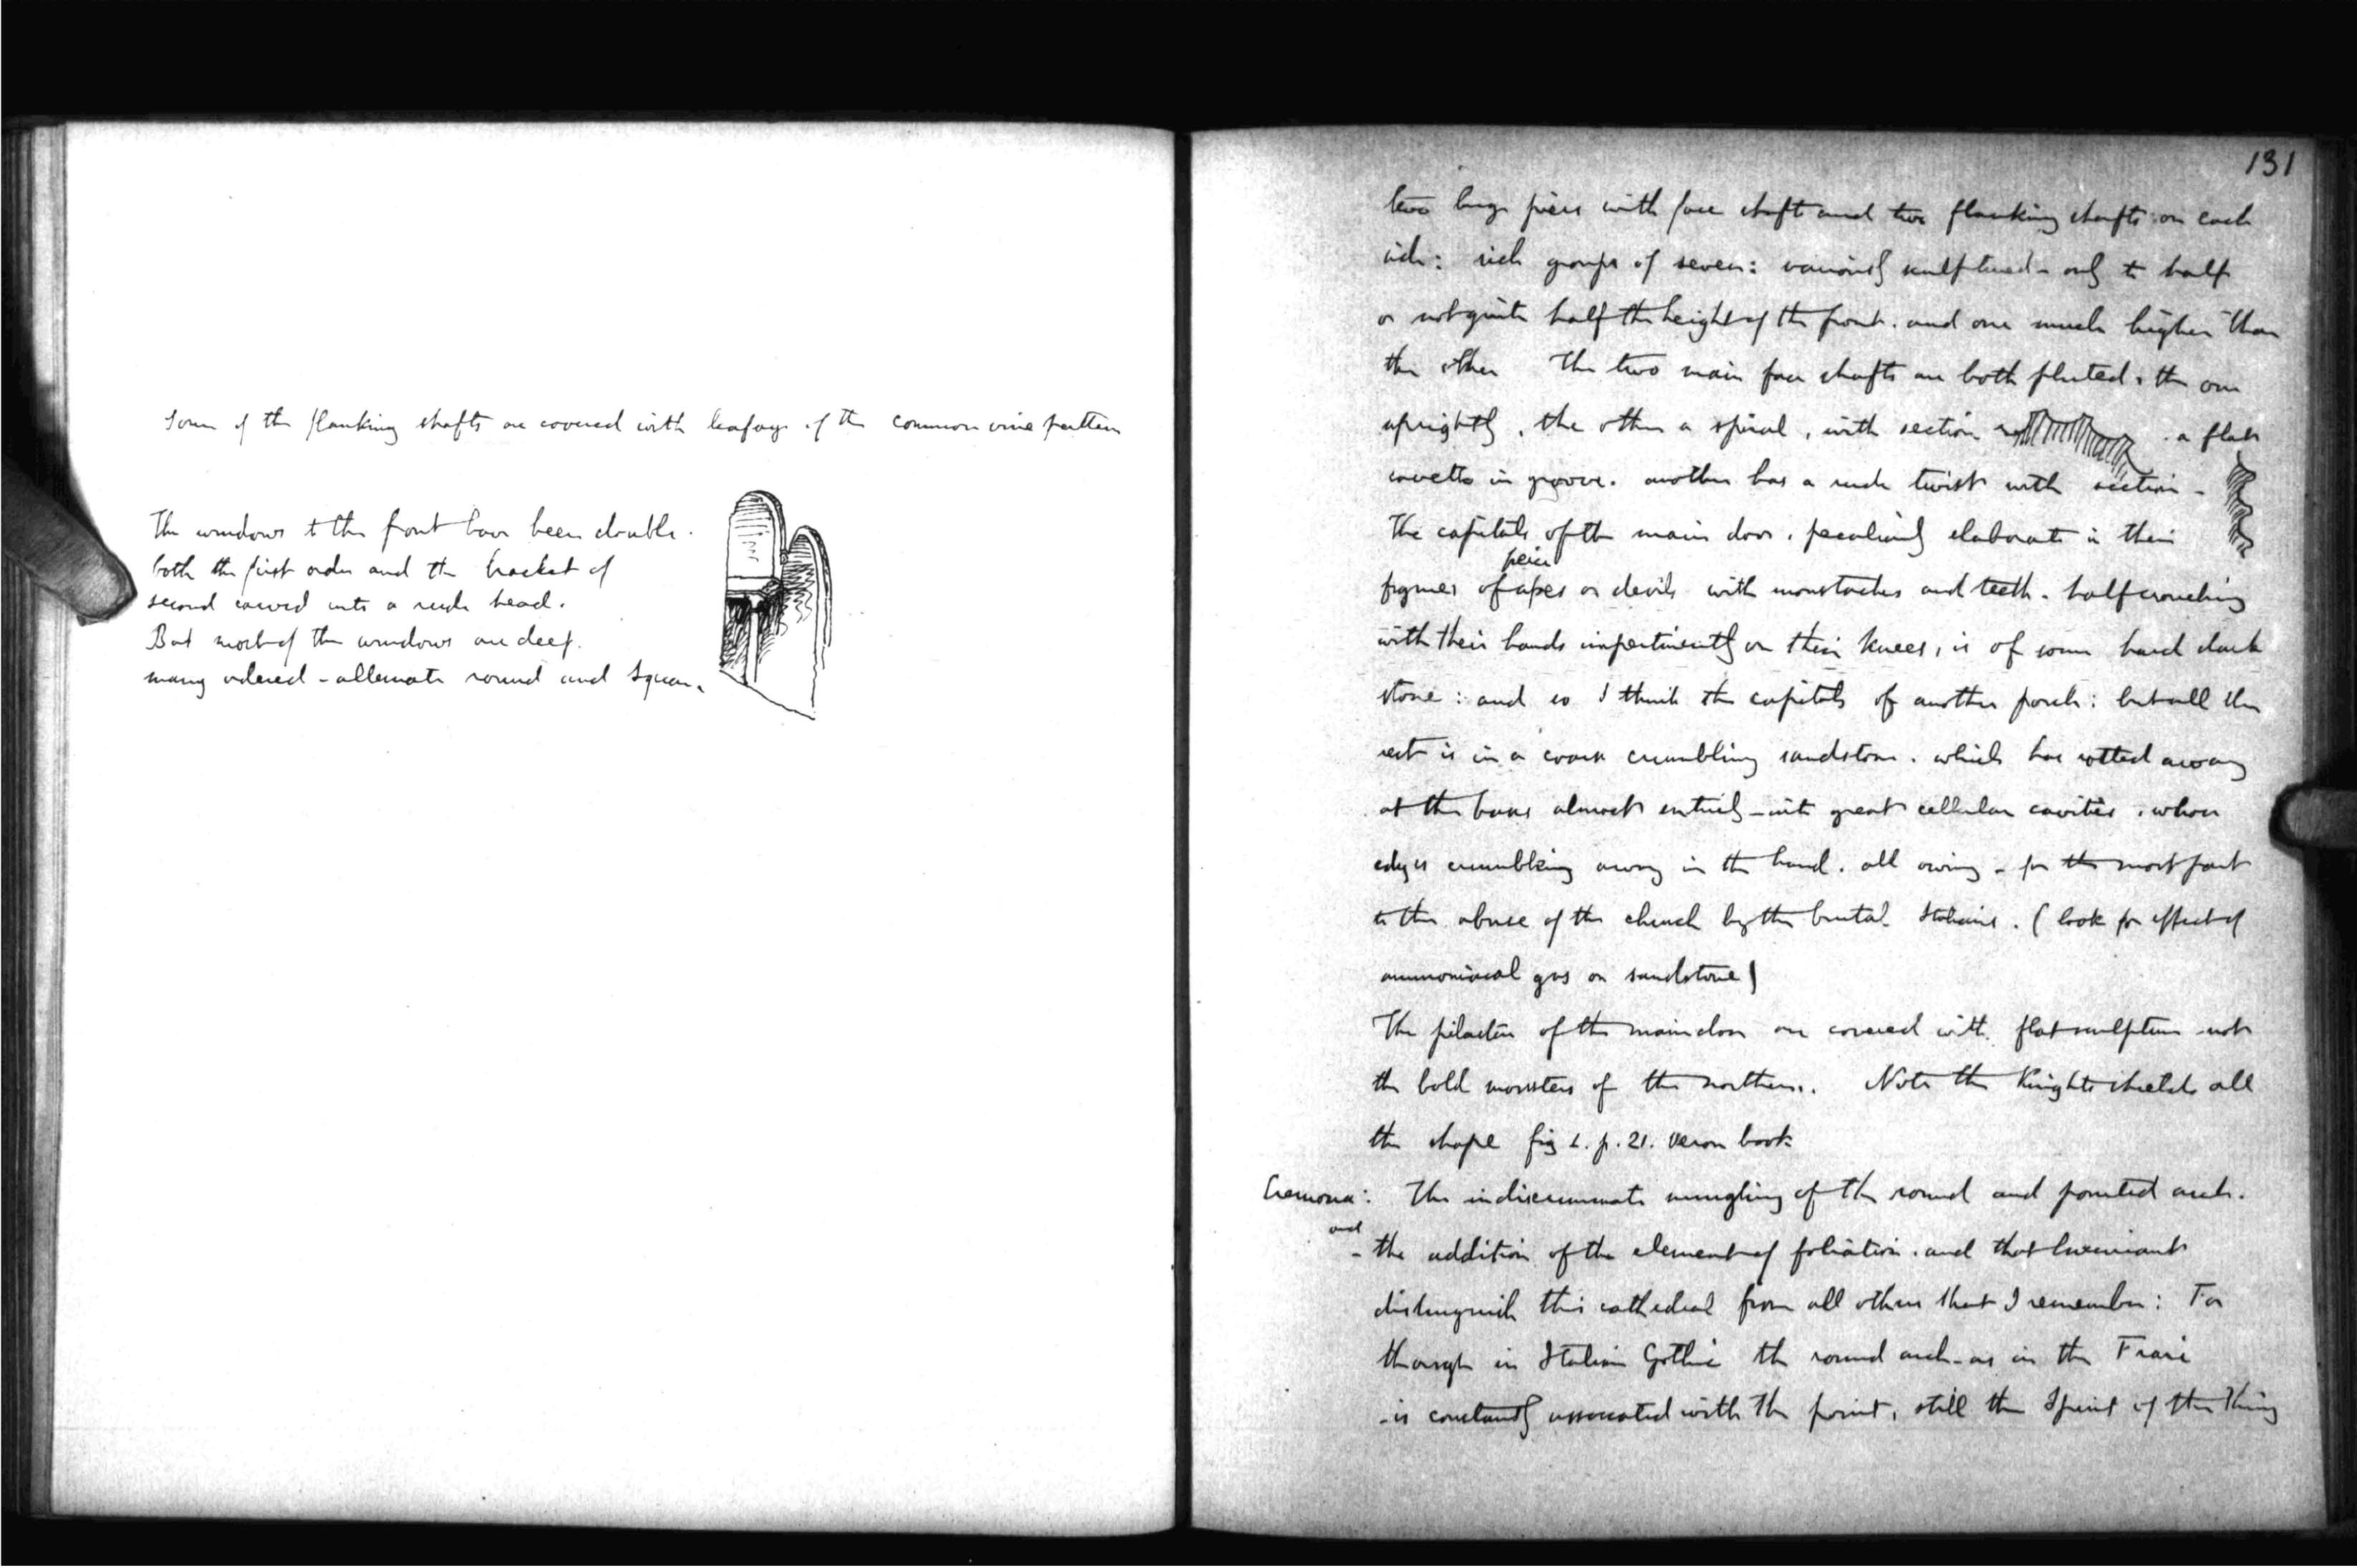 Some of the flanking shafts are covered with leafage of the common vine pattern
The windows to the front have been double.
both the first order and the bracket of
second carved into a rude head.
But most of the windows are deep.
many ordered - alternate round and square.
131
two huge piers with face shaft and two flanking shafts on each
side: rich groups of seven: variously sculptured - only to half
or not quite half the height of the front. and one much higher than
the other The two main face shafts are both fluted, the one
uprightly, the other a spiral, with section a flat
cavetto in groove. another has a rude twist with section -
The capitals of the main door, peculiarly elaborate in their
figures of apes or devils with moustaches and teeth. half crouching
with their hands impertinently on their knees, is of some hard dark
stone: and so I think the capitals of another porch: but all the
rest is in a coarse crumbling sandstone. which has rotted away
at the base almost entirely - into great cellular cavities, whose
edges crumbling away in the hand. all owing - for the most part
to the abuse of the church by the brutal Italians. (look for effect of
ammoniacal gas on sandstone)
The pilasters of the main door are covered with flat sculpture not
the bold monsters of the northern. Note the Knights shields all
the shape fig 1. p. 21. Veron book
Cremona: The indiscriminate mingling of the round and pointed arch.
and
- the addition of the element of foliation. and that luxuriant
distinguish this cathedral from all others that I remember: For
though in Italian Gothic the round arch - as in the Frari
- is constantly associated with the point, still the Spirit of the thing